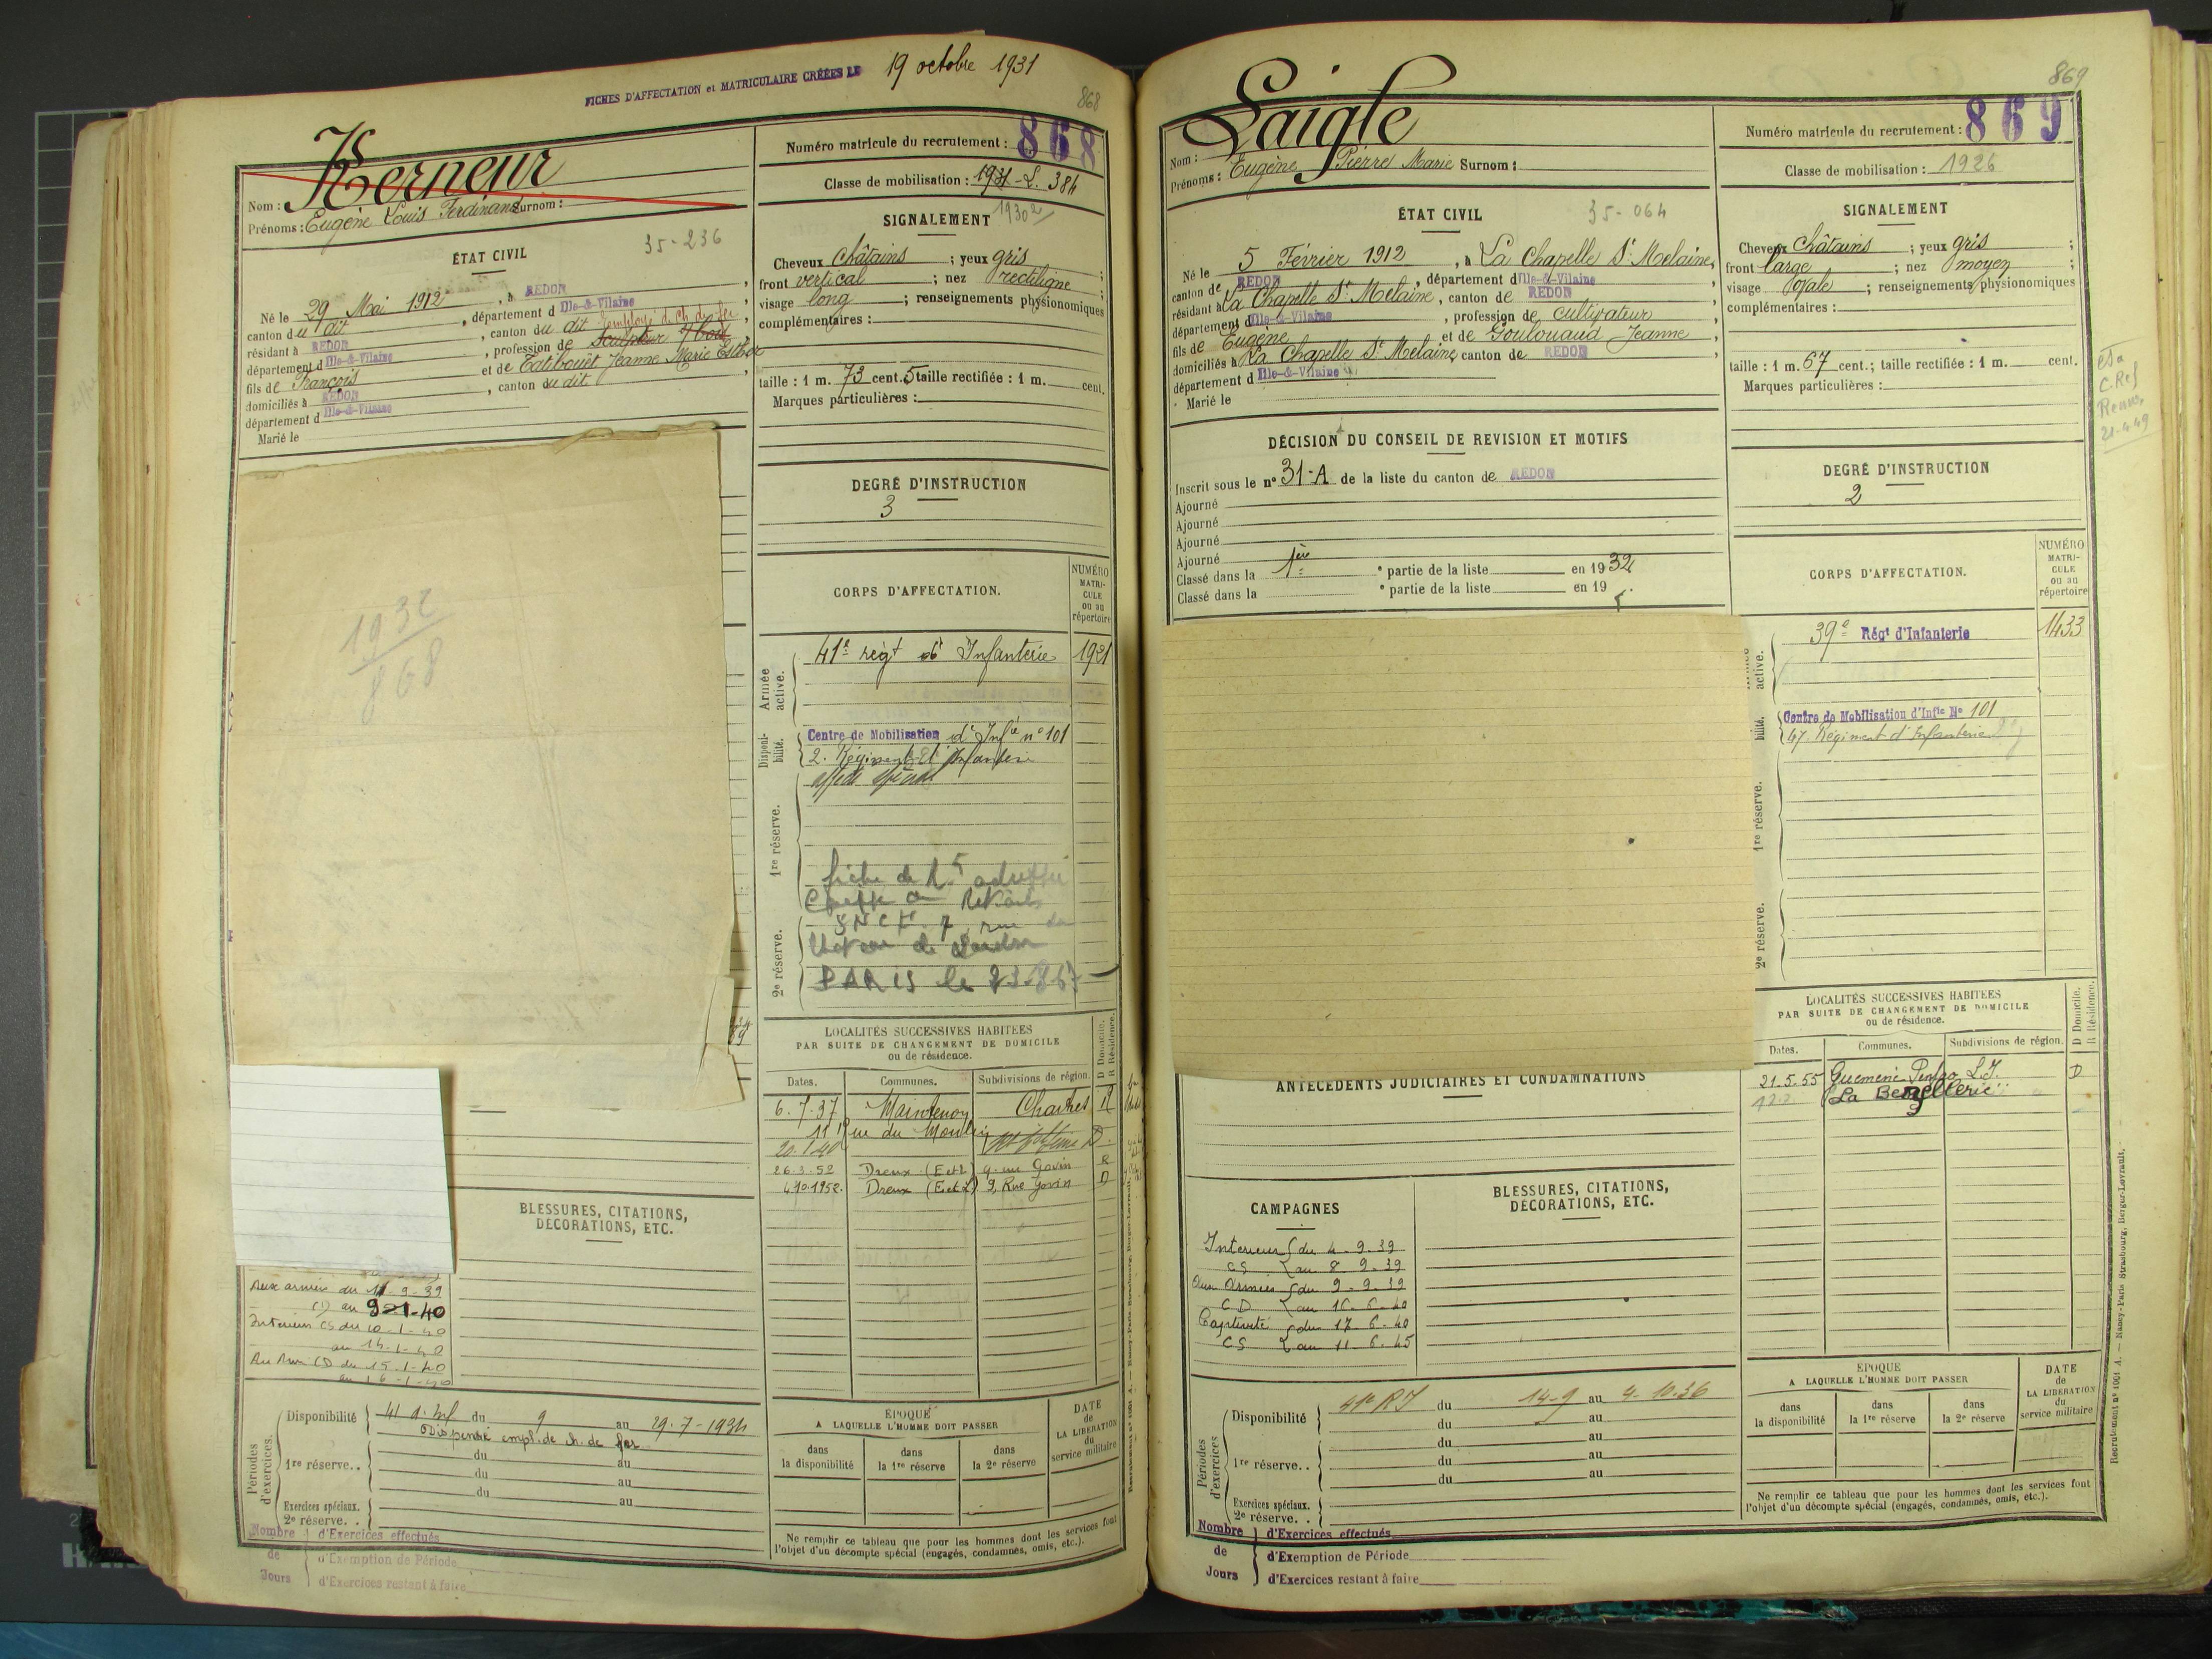 FICHES D'AFFECTATION et MATRICULAIRE CRÉÉES LE 19 octobre 1931
868
Kerneur
Nom :
Prénoms : Eugène Louis Ferdinand Surnom :
ÉTAT CIVIL
35-236
Né le 29 Mai 1912, à REDON
canton du dit, département d Ille-&-Vilaine
résidant à REDON, canton du dit employé de ch de fer
département d Ille-&-Vilaine, profession de Sculpteur s/bois
fils de François et de Tatibouët Jeanne Marie Esther
domiciliés à REDON, canton du dit
département d Ille-&-Vilaine
Marié le
1932
868
Numéro matricule du recrutement : 868
Classe de mobilisation : 1931 - L. 384
1930
SIGNALEMENT
Cheveux châtains ; yeux gris ;
front vertical ; nez rectiligne ;
visage long ; renseignements physionomiques
complémentaires :
taille : 1 m. 73 cent. 5 taille rectifiée : 1 m. cent.
Marques particulières :
DEGRÉ D'INSTRUCTION
3
CORPS D'AFFECTATION.
NUMÉRO MATRI-CULE ou au répertoire
Armée active.
41e régt d'Infanterie 1921
Disponi-bilité.
Centre de Mobilisation d'Infie n° 101
2. Régiment d'Infanterie
affecté spécial
1re réserve.
2e réserve.
fiche de
SNCF. 7, rue du
PARIS le
LOCALITÉS SUCCESSIVES HABITÉES
PAR SUITE DE CHANGEMENT DE DOMICILE
ou de résidence.
D Domicile.
R Résidence.
Dates. Communes. Subdivisions de région.
6.7.37 Maintenon Chartres R
11 rue du Moulin
20.1.40
26.3.52 Dreux (E et L) 9. rue Govin R
4.10.1952. Dreux (E et L) 9, Rue Govin D
BLESSURES, CITATIONS,
DÉCORATIONS, ETC.
Aux armées du 11-9-39
(1) au 9-1-40
Intérieur CS du 10-1-40
au 14-1-40
Aux Armées CD du 15-1-40
au 16-1-40
Périodes d'exercices.
Disponibilité 41 R. Inf du 9 au 29-7-1934
Dispensé empl. de ch. de fer
1re réserve.. du au
du au
du au
Exercices spéciaux.
2e réserve. .
Nombre de Jours
d'Exercices effectués
d'Exemption de Période
d'Exercices restant à faire
ÉPOQUE
A LAQUELLE L'HOMME DOIT PASSER
dans la disponibilité
dans la 1re réserve
dans la 2e réserve
DATE de LA LIBÉRATION du service militaire
Ne remplir ce tableau que pour les hommes dont les services font
l'objet d'un décompte spécial (engagés, condamnés, omis, etc.).
869
Laigle
Nom :
Prénoms : Eugène Pierre Marie Surnom :
ÉTAT CIVIL
35-064
Né le 5 Février 1912, à La Chapelle St Melaine,
canton de REDON, département d Ille-&-Vilaine
résidant à La Chapelle St Melaine, canton de REDON
département d Ille-&-Vilaine, profession de cultivateur
fils de Eugène et de Goulouaud Jeanne
domiciliés à La Chapelle St Melaine canton de REDON
département d Ille-&-Vilaine
Marié le
DÉCISION DU CONSEIL DE REVISION ET MOTIFS
Inscrit sous le n° 31-A de la liste du canton de REDON
Ajourné
Ajourné
Ajourné
Ajourné
Classé dans la 1ère e partie de la liste en 1932
Classé dans la e partie de la liste en 19
Numéro matricule du recrutement : 869
Classe de mobilisation : 1926
SIGNALEMENT
Cheveux châtains ; yeux gris ;
front large ; nez moyen ;
visage ovale ; renseignements physionomiques
complémentaires :
taille : 1 m. 67 cent. ; taille rectifiée : 1 m. cent.
Marques particulières :
C.Ref
21-4-49
DEGRÉ D'INSTRUCTION
2
CORPS D'AFFECTATION.
NUMÉRO MATRI-CULE ou au répertoire
active.
39e Régt d'Infanterie 1433
bilité.
Centre de Mobilisation d'Infie N° 101
47. Régiment d'Infanterie
1re réserve.
2e réserve.
LOCALITÉS SUCCESSIVES HABITÉES
PAR SUITE DE CHANGEMENT DE DOMICILE
ou de résidence.
D Domicile.
R Résidence.
Dates. Communes. Subdivisions de région.
21.5.55 Guemené Penfao L.I. D
La
ANTÉCÉDENTS JUDICIAIRES ET CONDAMNATIONS
CAMPAGNES
BLESSURES, CITATIONS,
DÉCORATIONS, ETC.
Intérieur du 4-9-39
CS au 8-9-39
Aux Armées du 9-9-39
CD au 16-6-40
Captivité du 17-6-40
CS au 11-6-45
Périodes d'exercices
Disponibilité 41e RI du 14-9 au 4-10.36
du au
1re réserve. . du au
du au
du au
Exercices spéciaux.
2e réserve. .
Nombre de Jours
d'Exercices effectués
d'Exemption de Période
d'Exercices restant à faire
ÉPOQUE
A LAQUELLE L'HOMME DOIT PASSER
dans la disponibilité
dans la 1re réserve
dans la 2e réserve
DATE de LA LIBÉRATION du service militaire
Ne remplir ce tableau que pour les hommes dont les services font
l'objet d'un décompte spécial (engagés, condamnés, omis, etc.).
Recrutement n° 1061 A. — Nancy-Paris-Strasbourg, Berger-Levrault.